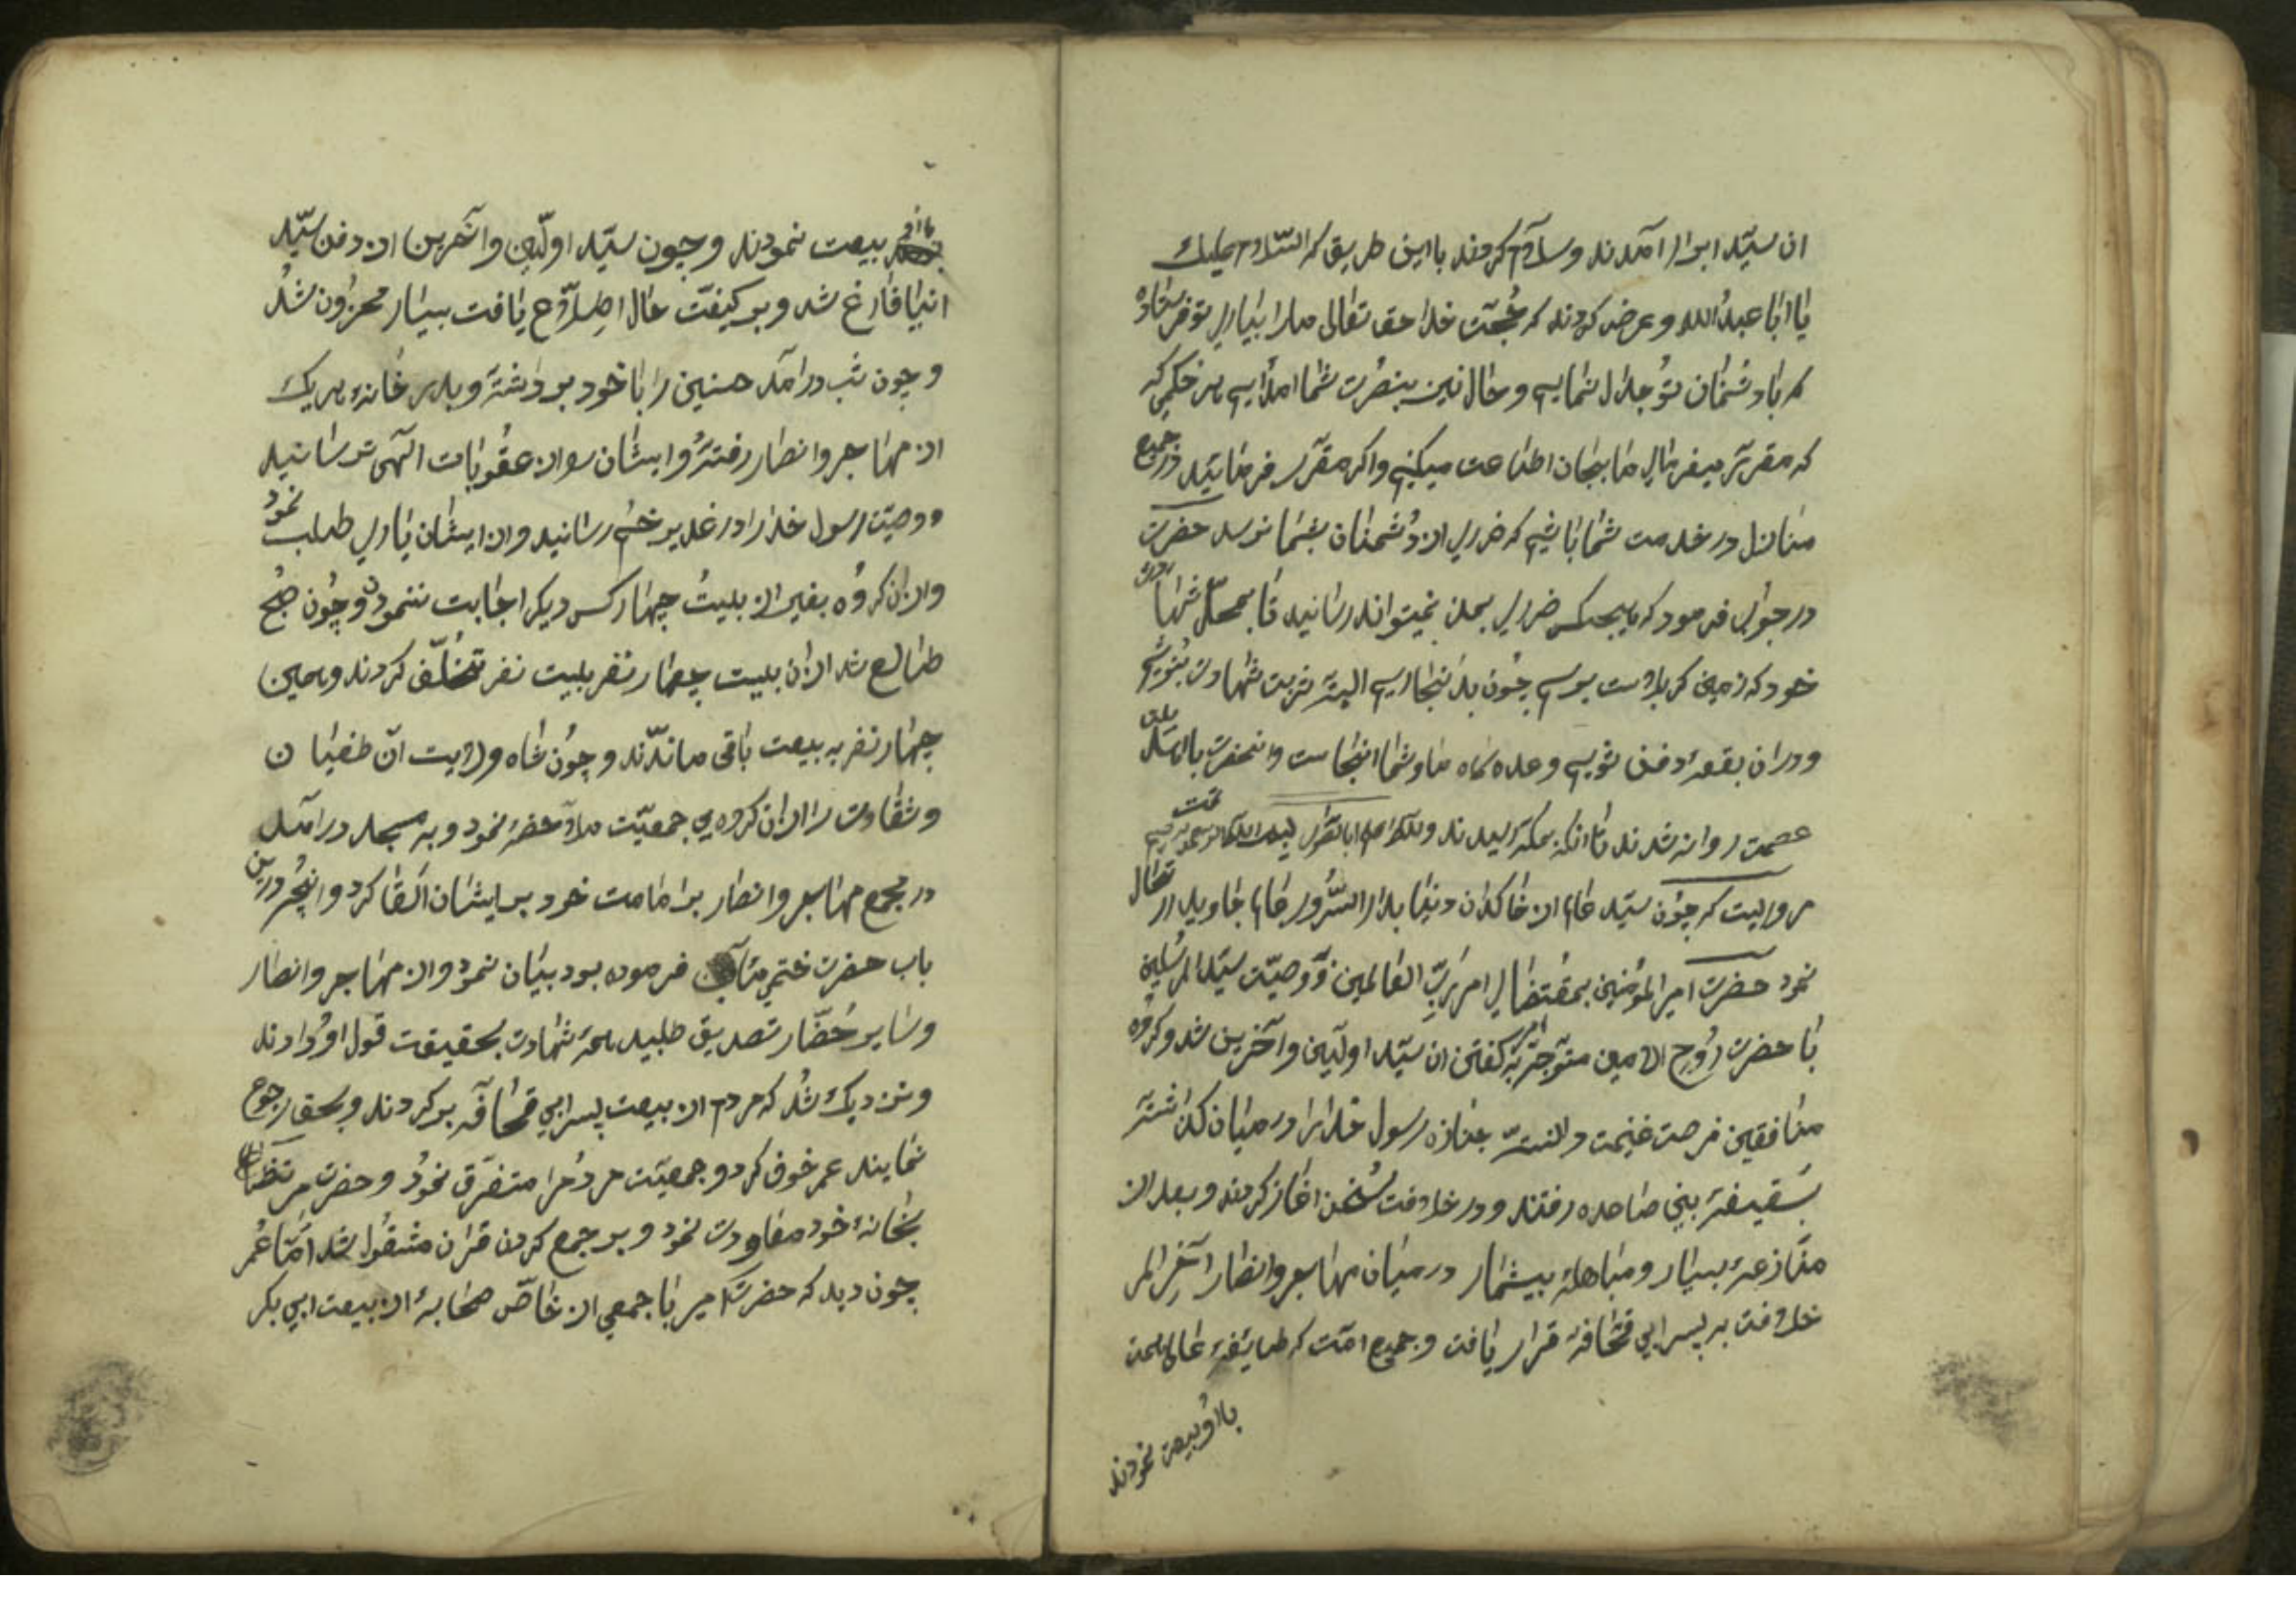 ان سیّد ابرار آمدند و سلام کردند باین طریق که السّلام علیك
یا ابا عبد الله و عرض کردند که حُجّت خدا حق تعالی مارا بیاری تو فرستاده
که با دشمنان تو جدال نماییم و حال نیز بنصرت شما امداییم هر حکمی که
که مقرّر میفرمایی ما بجان اطاعت میکنیم و اکر مقرّر فرمایید در جمیع
منازل در خدمت شما باشیم که ضرری از دشمنان بشما نرسد حضرت
در جواب فرمود که هیچکس ضرری بمن نمیتواند رسانید تا بمحلّ شهادت
خود که زمین کربلاست برسم چون بدانجا رسیم البته شربت شهادت بنوشیم
و در ان بقعه دفن شویم و وعده کاه ما و شما انجاست و انحضرت با
عصمت روانه شدند تا انکه بمکّه رسیدند
مرویست که چون سیّد عالم از خاکدان دنیا بدار السّرور عالم جاوید ارتحال
نمود حضرت امیر المؤمنین بمقتضای امر ربّ العالمین و وصیّت سیّد المرسلین
با حضرت رُوح الامین متوجّه بر کفن ان سیّد اولین و آخرین شد و کروه
منافقین فرصت غنیمت دانسته جنازه رسول خدا را در میان کذاشته
بسقیفه بنی ساعده رفتند و در خلافت سُخن اغاز کردند و بعد از
منازعۀ بسیار و مباهلۀ بیشمار در میان مهاجر و انصار آخر الامر
خلافت به پسر ابی قحافه قرار یافت و جمیع امّت که طایفه
با اُو بیعت نمودند
با او بیعت نمودند و چون سیّد اولین و آخرین از دفن سیّد
انبیا فارغ شد و بر کیفیّت حال اطلاع یافت بسیار محزون شد
و چون شب درامد حسنین را با خود برداشته و بدر خانۀ هر یك
از مهاجر و انصار رفته و ایشان را از عقوبات الهی ترسانید
و وصیّت رسول خدا را در غدیر خُم رسانید و از ایشان یاری طلب نمود
و از ان کروه بغیر از بیست چهار کس دیکر اجابت ننمودن و چُون صُبح
طالع شد از ان بیست چهار نفر بیست نفر تخلّف کردند و همین
چهار نفر به بیعت باقی ماندند و چون شاه ولایت آن طغیان
و شقاوت را از ان کروه بی جمعیّت ملاحضه نمود و به مسجد درآمد
در مجمع مهاجر و انصار بر امامت خود بر ایشان القا کرد و انچه درین
باب حضرت ختمی مآب فرموده بود بیان نمود و از مهاجر و انصار
و سایر حُضّار تصدیق طلبید همه شهادت بحقیقت قول او دادند
و نزدیك شد که مردم از بیعت پسر ابی قحافه برکردند و بحق رجوع
نمایند عمر خوف کرد و جمعیّت مردم را متفرّق نمود و حضرت
بخانۀ خود معاودت نمود و بر جمع کردن قران مشغول شد امّا عُمر
چون دید که حضرت امیر با جمعی از خاصّ صحابه از بیعت ابی بکر